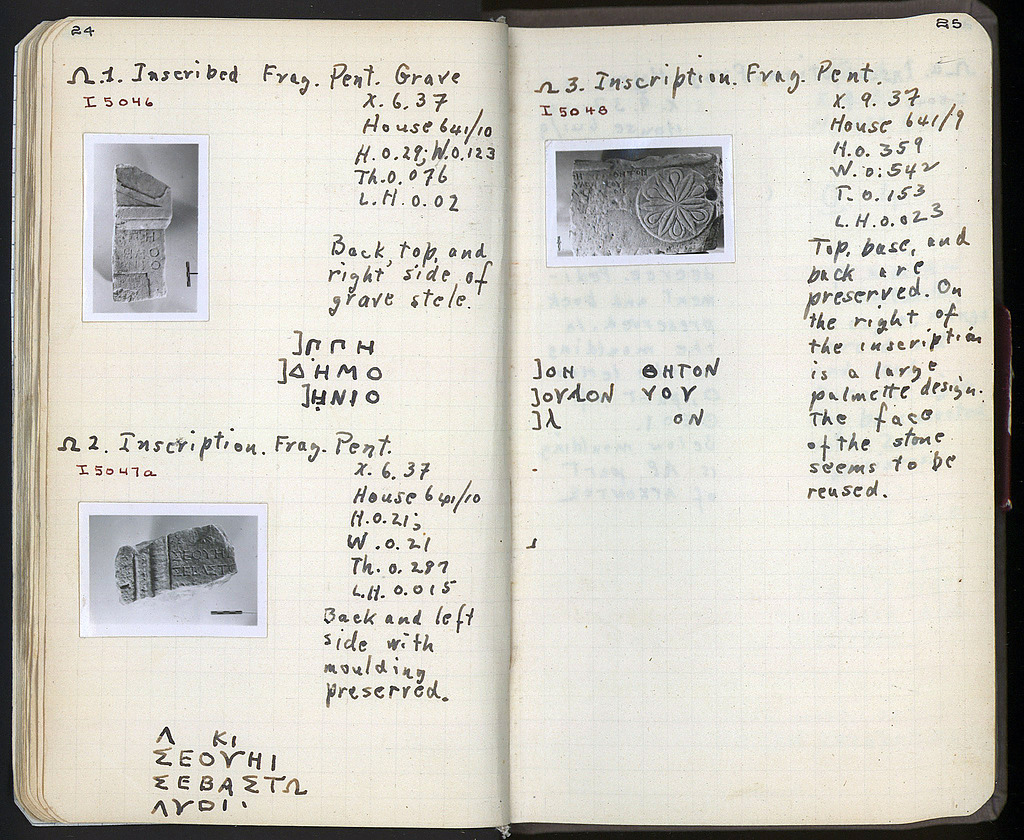 24
Ω.1. Inscribed Frag. Pent. Grave
I 5046
X. 6. 37
House 641/10
H. 0.29; W. 0.123
Th. 0. 076
L. H. 0. 02
Back, top, and
right side of
grave stele.
]ΠΠΗ
]ΔΗΜΟ
]ΗΝΙΟ
Ω 2. Inscription. Frag. Pent.
I 5047a
X. 6. 37
House 641/10
H. 0. 21;
W. 0. 21
Th. 0. 287
L.H. 0.015
Back and left
side with
moulding
preserved.
Λ ΚΙ
ΣΕΟΥΗΙ
ΣΕΒΑΣΤΩ
25
Ω 3. Inscription. Frag. Pent.
I 5048
X. 9. 37
House 641/9
H. 0. 359
W. 0: 542
T. 0. 153
L. H. 0. 023
Top, base, and
back are
preserved. On
the right of
the inscription
is a large
palmette design.
The face
of the stone
seems to be
reused.
]ΟΗ ΘΗΤΟΝ
]ΟΥΛΟΝ ΥΟΥ
]λ ΟΝ